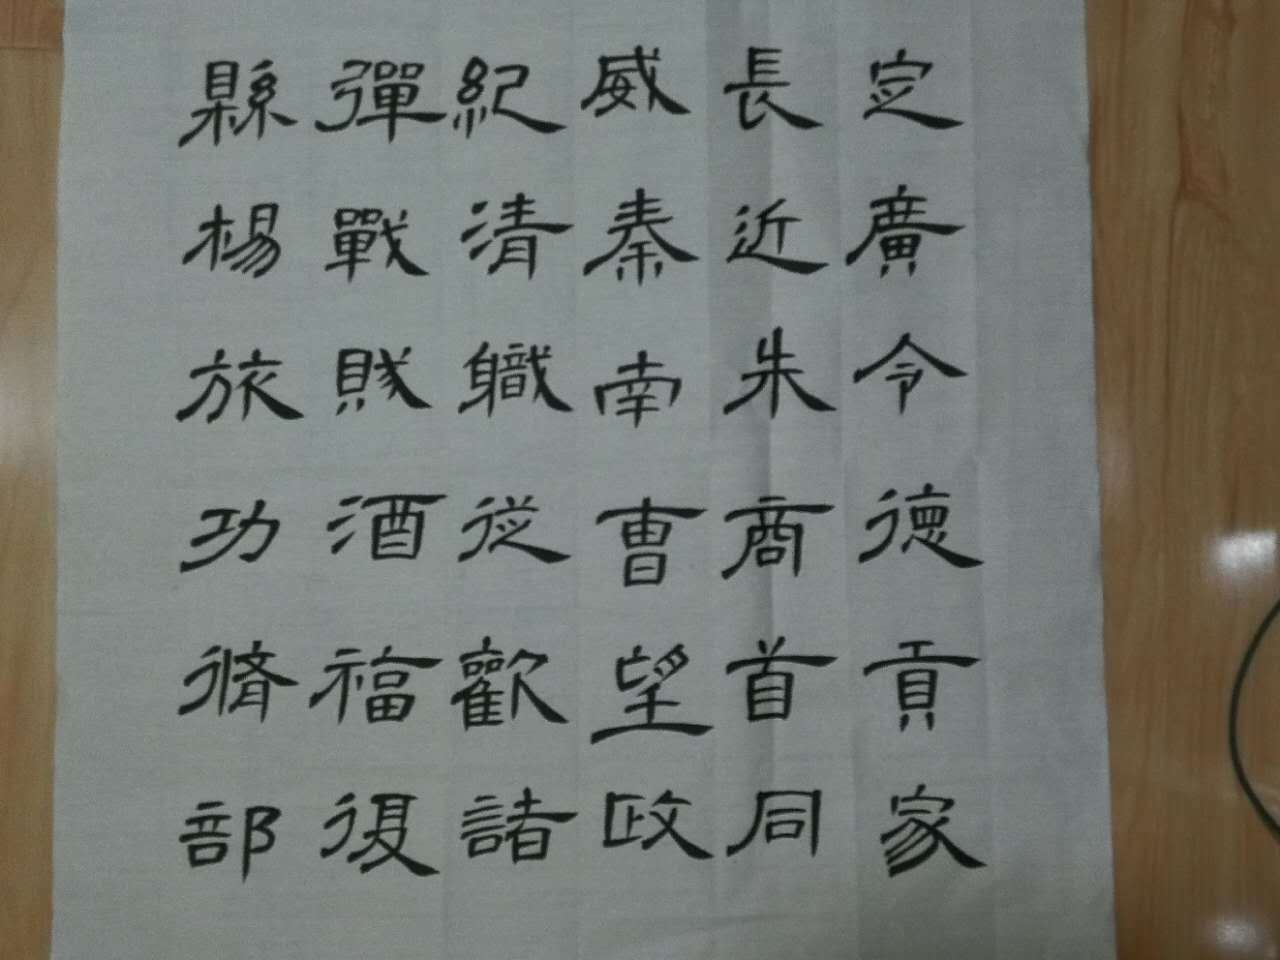 定廣令德貢家
長近朱商首同
威秦南曹望政
紀清職從歡諸
彈戰賊酒福復
縣楊旅功脩部